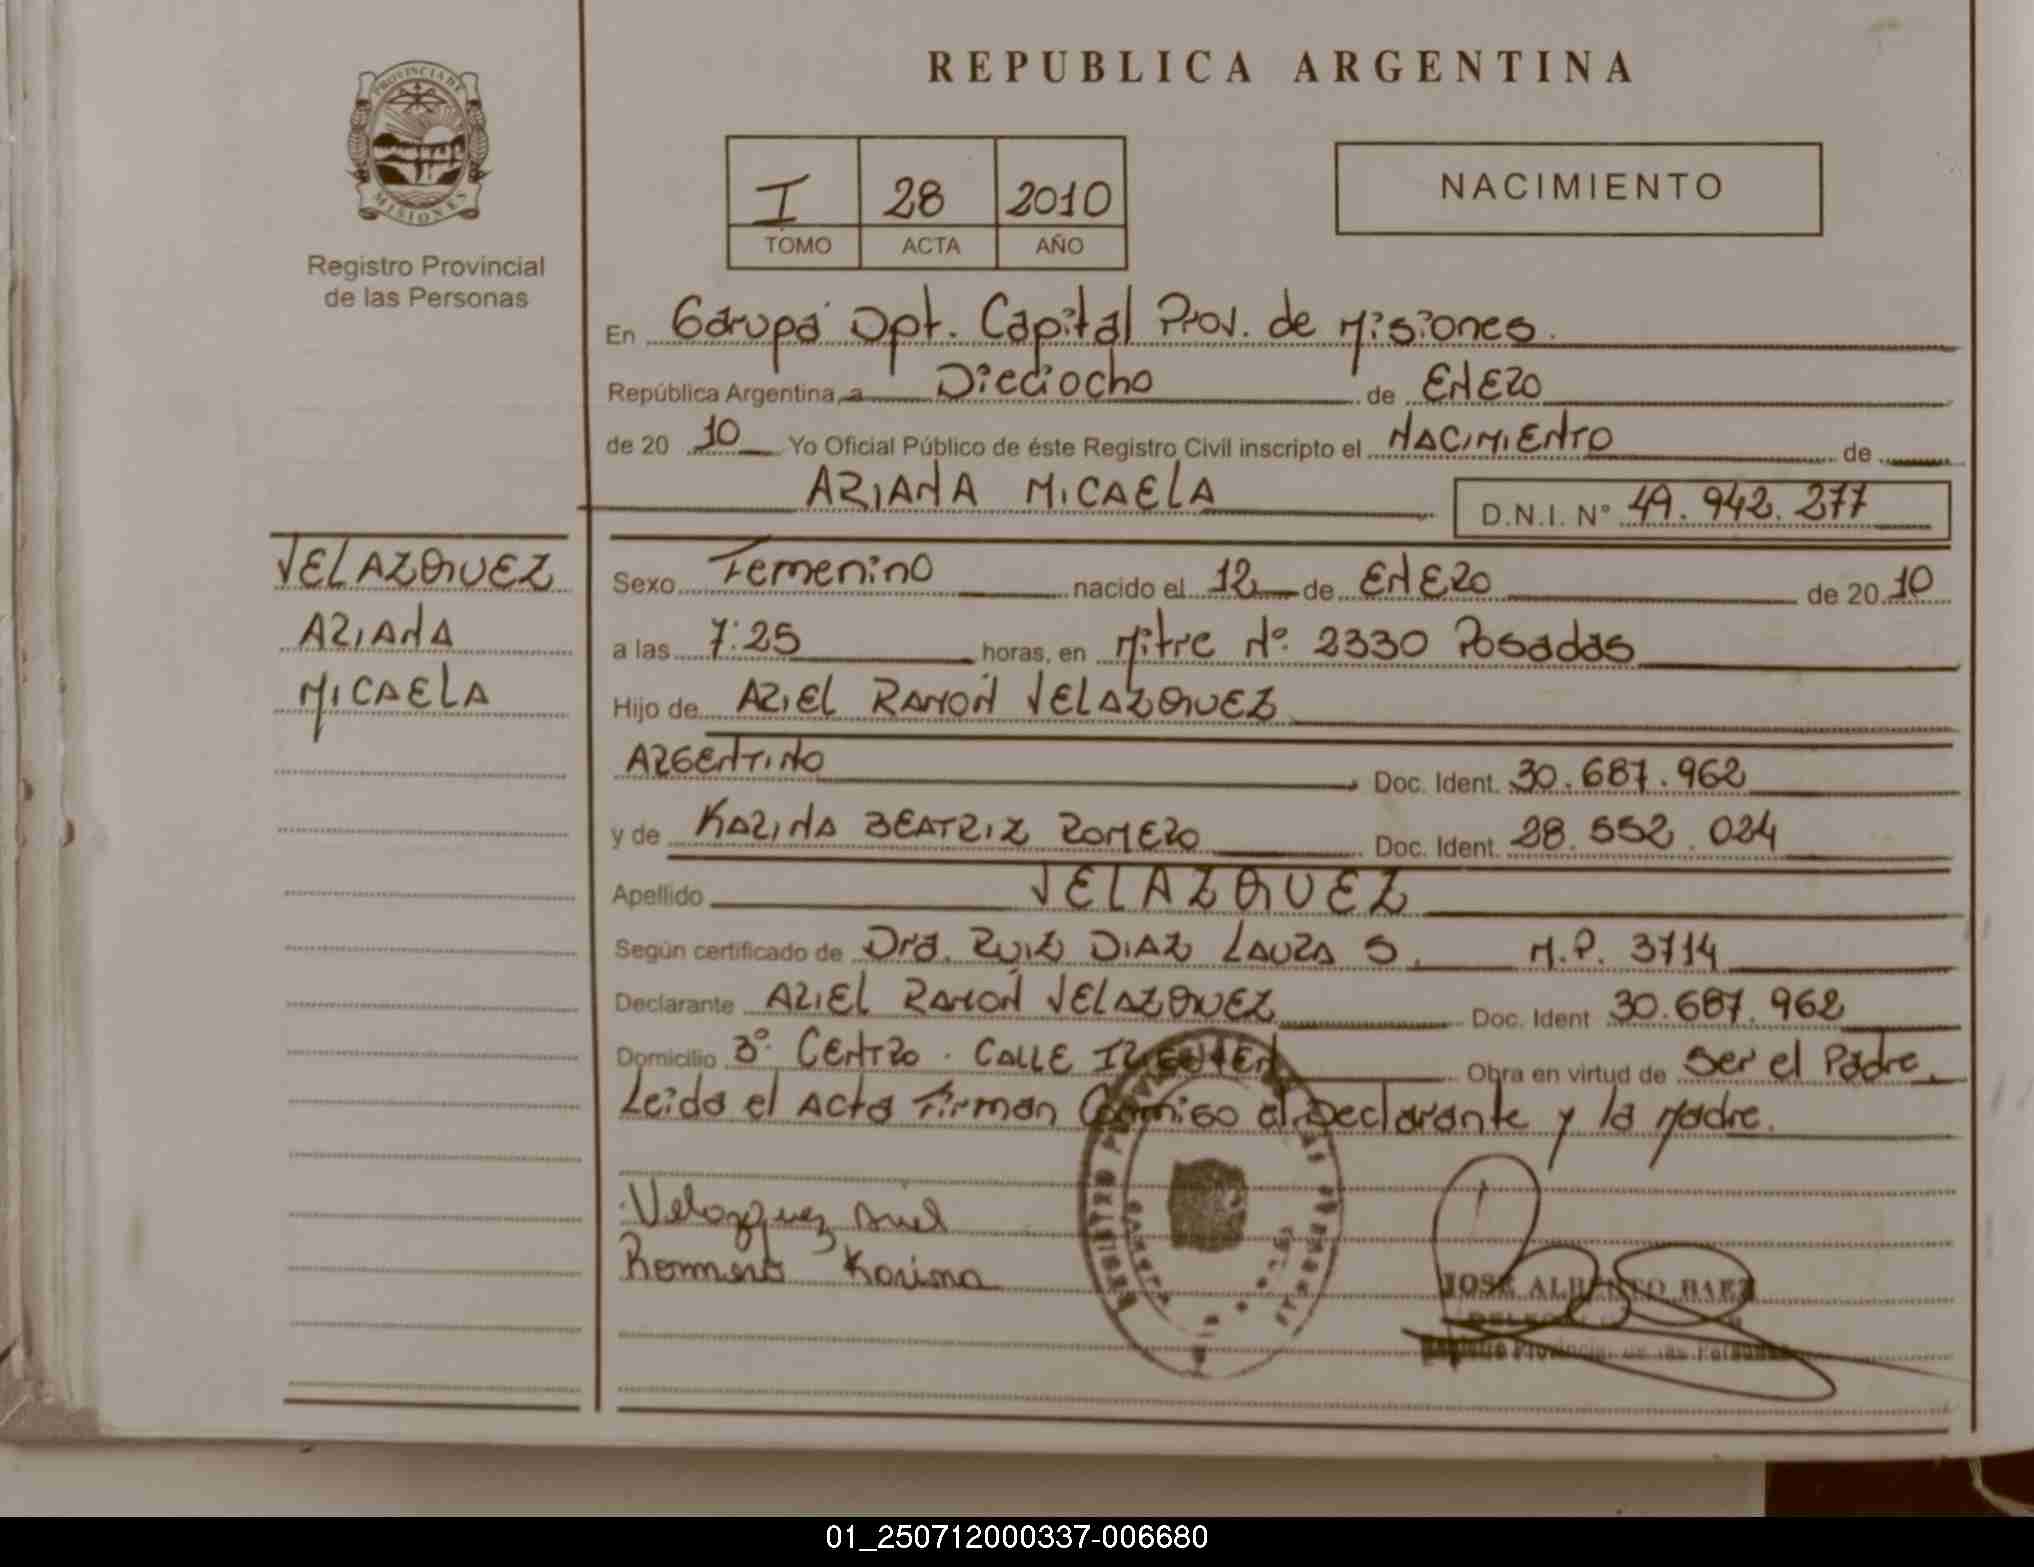 PROVINCIA DE
MISIONES
Registro Provincial
de las Personas
REPUBLICA ARGENTINA
I 28 2010
TOMO ACTA AÑO
NACIMIENTO
En Garupá Dpt. Capital Prov. de Misiones.
República Argentina, a Dieciocho de ENERO
de 20 10 Yo Oficial Público de éste Registro Civil inscripto el NACIMIENTO de
ARIANA MICAELA D.N.I. N° 49.942.277
VELAZQUEZ
ARIANA
MICAELA
Sexo Femenino nacido el 12 de ENERO de 20 10
a las 7:25 horas, en Mitre N° 2330 Posadas
Hijo de ARIEL RAMON VELAZQUEZ
ARGENTINO Doc. Ident. 30.687.962
y de KARINA BEATRIZ ROMERO Doc. Ident. 28.552.024
Apellido VELAZQUEZ
Según certificado de Dra. RUIZ DIAZ LAURA S. M.P. 3714
Declarante ARIEL RAMON VELAZQUEZ Doc. Ident 30.687.962
Domicilio 3° CENTRO. CALLE Obra en virtud de Ser el Padre.
Leida el Acta Firman Conmigo el Declarante y la Madre.
Velazquez Ariel
Romero Karina
JOSE ALBERTO BAEZ
Registro Provincial de las Personas
01_250712000337-006680